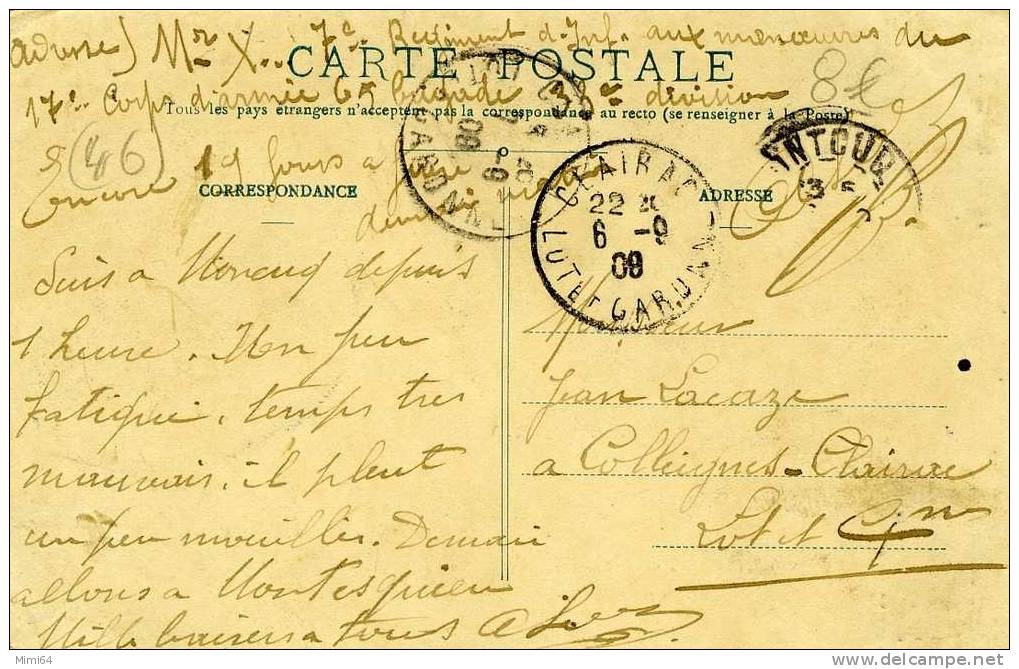 adresse) Mr X.. 7e Regiment d'Inf. aux manœuvres du
CARTE POSTALE
17e Corps d'armée brigade division
Tous les pays étrangers n'acceptent pas la correspondance au recto (se renseigner à la Poste)
46
Encore 19 jours a faire
CORRESPONDANCE
Suis a Moncuq depuis
1 heure. Mon peu
fatigué, temps tres
mauvais, il pleut
un peu mouillés. Demain
allons a Montesquieu
Mille baisers a tous
CLAIRAC
22
6 -9
09
LOT ET GARONNE
ADRESSE
Monsieur
Jean Lacaze
a Colleignes-Clairac
Lot et Gne
Mimi64
http://www.delcampe.net